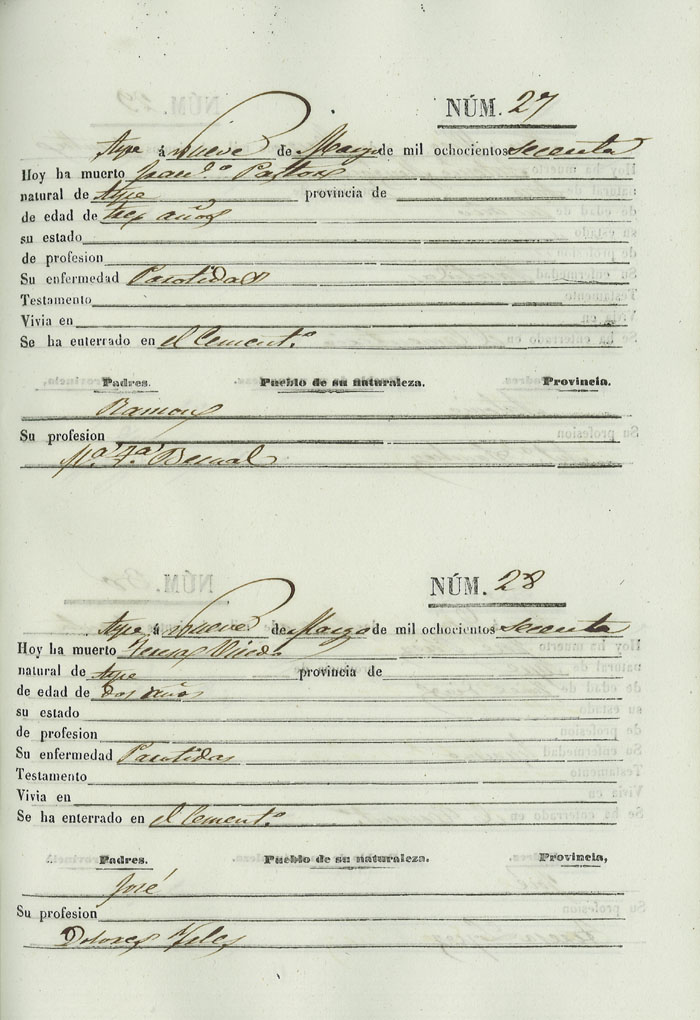 NÚM. 27
Aspe á Nueve de Marzo de mil ochocientos secenta
Hoy ha muerto Fran.ᶜᵒ Pastor
natural de Aspe provincia de
de edad de tres años
su estado
de profesion
Su enfermedad Parotidas
Testamento
Vivia en
Se ha enterrado en el Cement.º
Padres. Pueblo de su naturaleza. Provincia.
Ramon
Su profesion
M.ª F.ª Bernal
NÚM. 28
Aspe á Nueve de Marzo de mil ochocientos secenta
Hoy ha muerto Teresa
natural de Aspe provincia de
de edad de dos años
su estado
de profesion
Su enfermedad Parotidas
Testamento
Vivia en
Se ha enterrado en el Cement.º
Padres. Pueblo de su naturaleza. Provincia,
José
Su profesion
Dolores